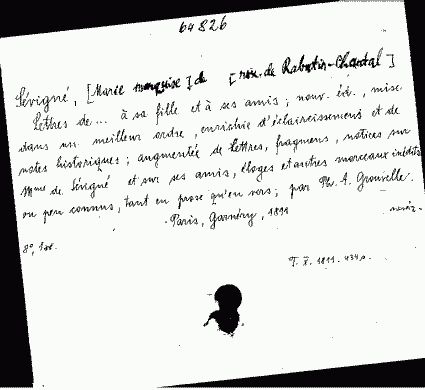 64826
Sévigné, [Marie marquise] de [née de Rabutin-Chantal]
Lettres de... à sa fille et à ses amis; nouv. éd., mise
dans un meilleur ordre, enrichie d'éclaircissemens et de
notes historiques; augmentée de lettres, fragmens, notices sur
Mme de Sévigné et sur ses amis, éloges et autres morceaux inédits
ou peu connus, tant en prose qu'en vers; par Ph. A. Grouvelle.
Paris, Garnéry, 1811
8°,
T. X. 1811. 434 p.